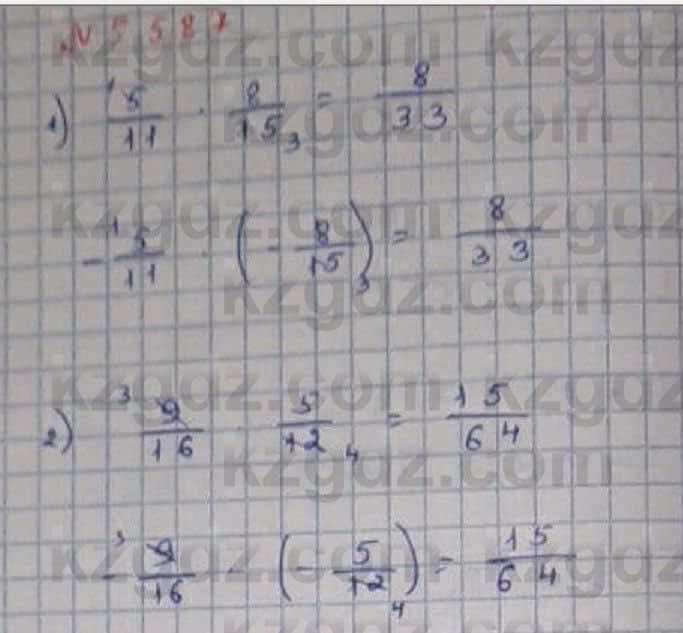 № 5 5 8 7
1) 5/11 · 8/15 = 8/33
1 3
- 5/11 · (- 8/15) = 8/33
1 3
2) 9/16 · 5/12 = 15/64
3 4
- 9/16 · (- 5/12) = 15/64
3 4
kzgdz.com kzgdz
kzgdz.com
kzgdz.com kzgdz
kzgdz.com
kzgdz.com kzgdz
kzgdz.com
kzgdz.com kzgdz